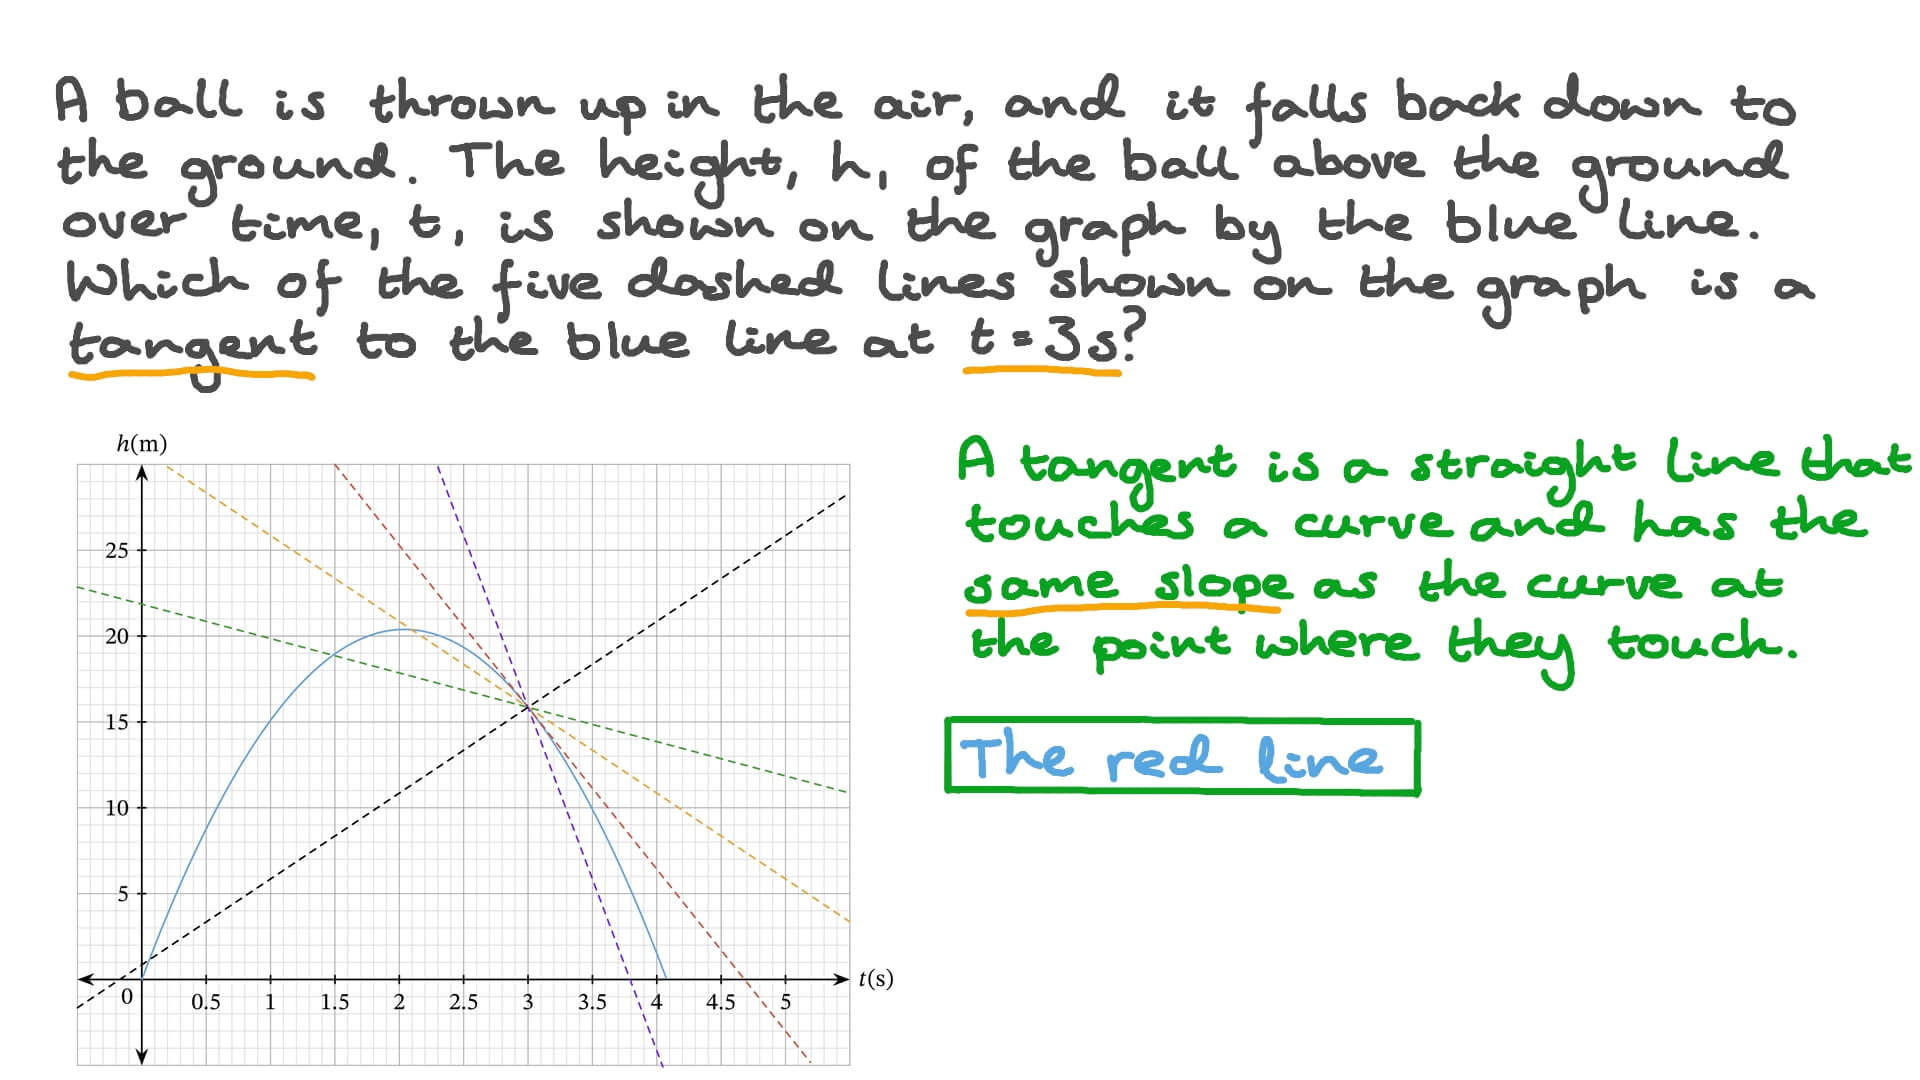 A ball is thrown up in the air, and it falls back down to
the ground. The height, h, of the ball above the ground
over time, t, is shown on the graph by the blue line.
Which of the five dashed lines shown on the graph is a
tangent to the blue line at t = 3s?
h(m)
25
20
15
10
5
0
0.5 1 1.5 2 2.5 3 3.5 4 4.5 5
t(s)
A tangent is a straight line that
touches a curve and has the
same slope as the curve at
the point where they touch.
The red line